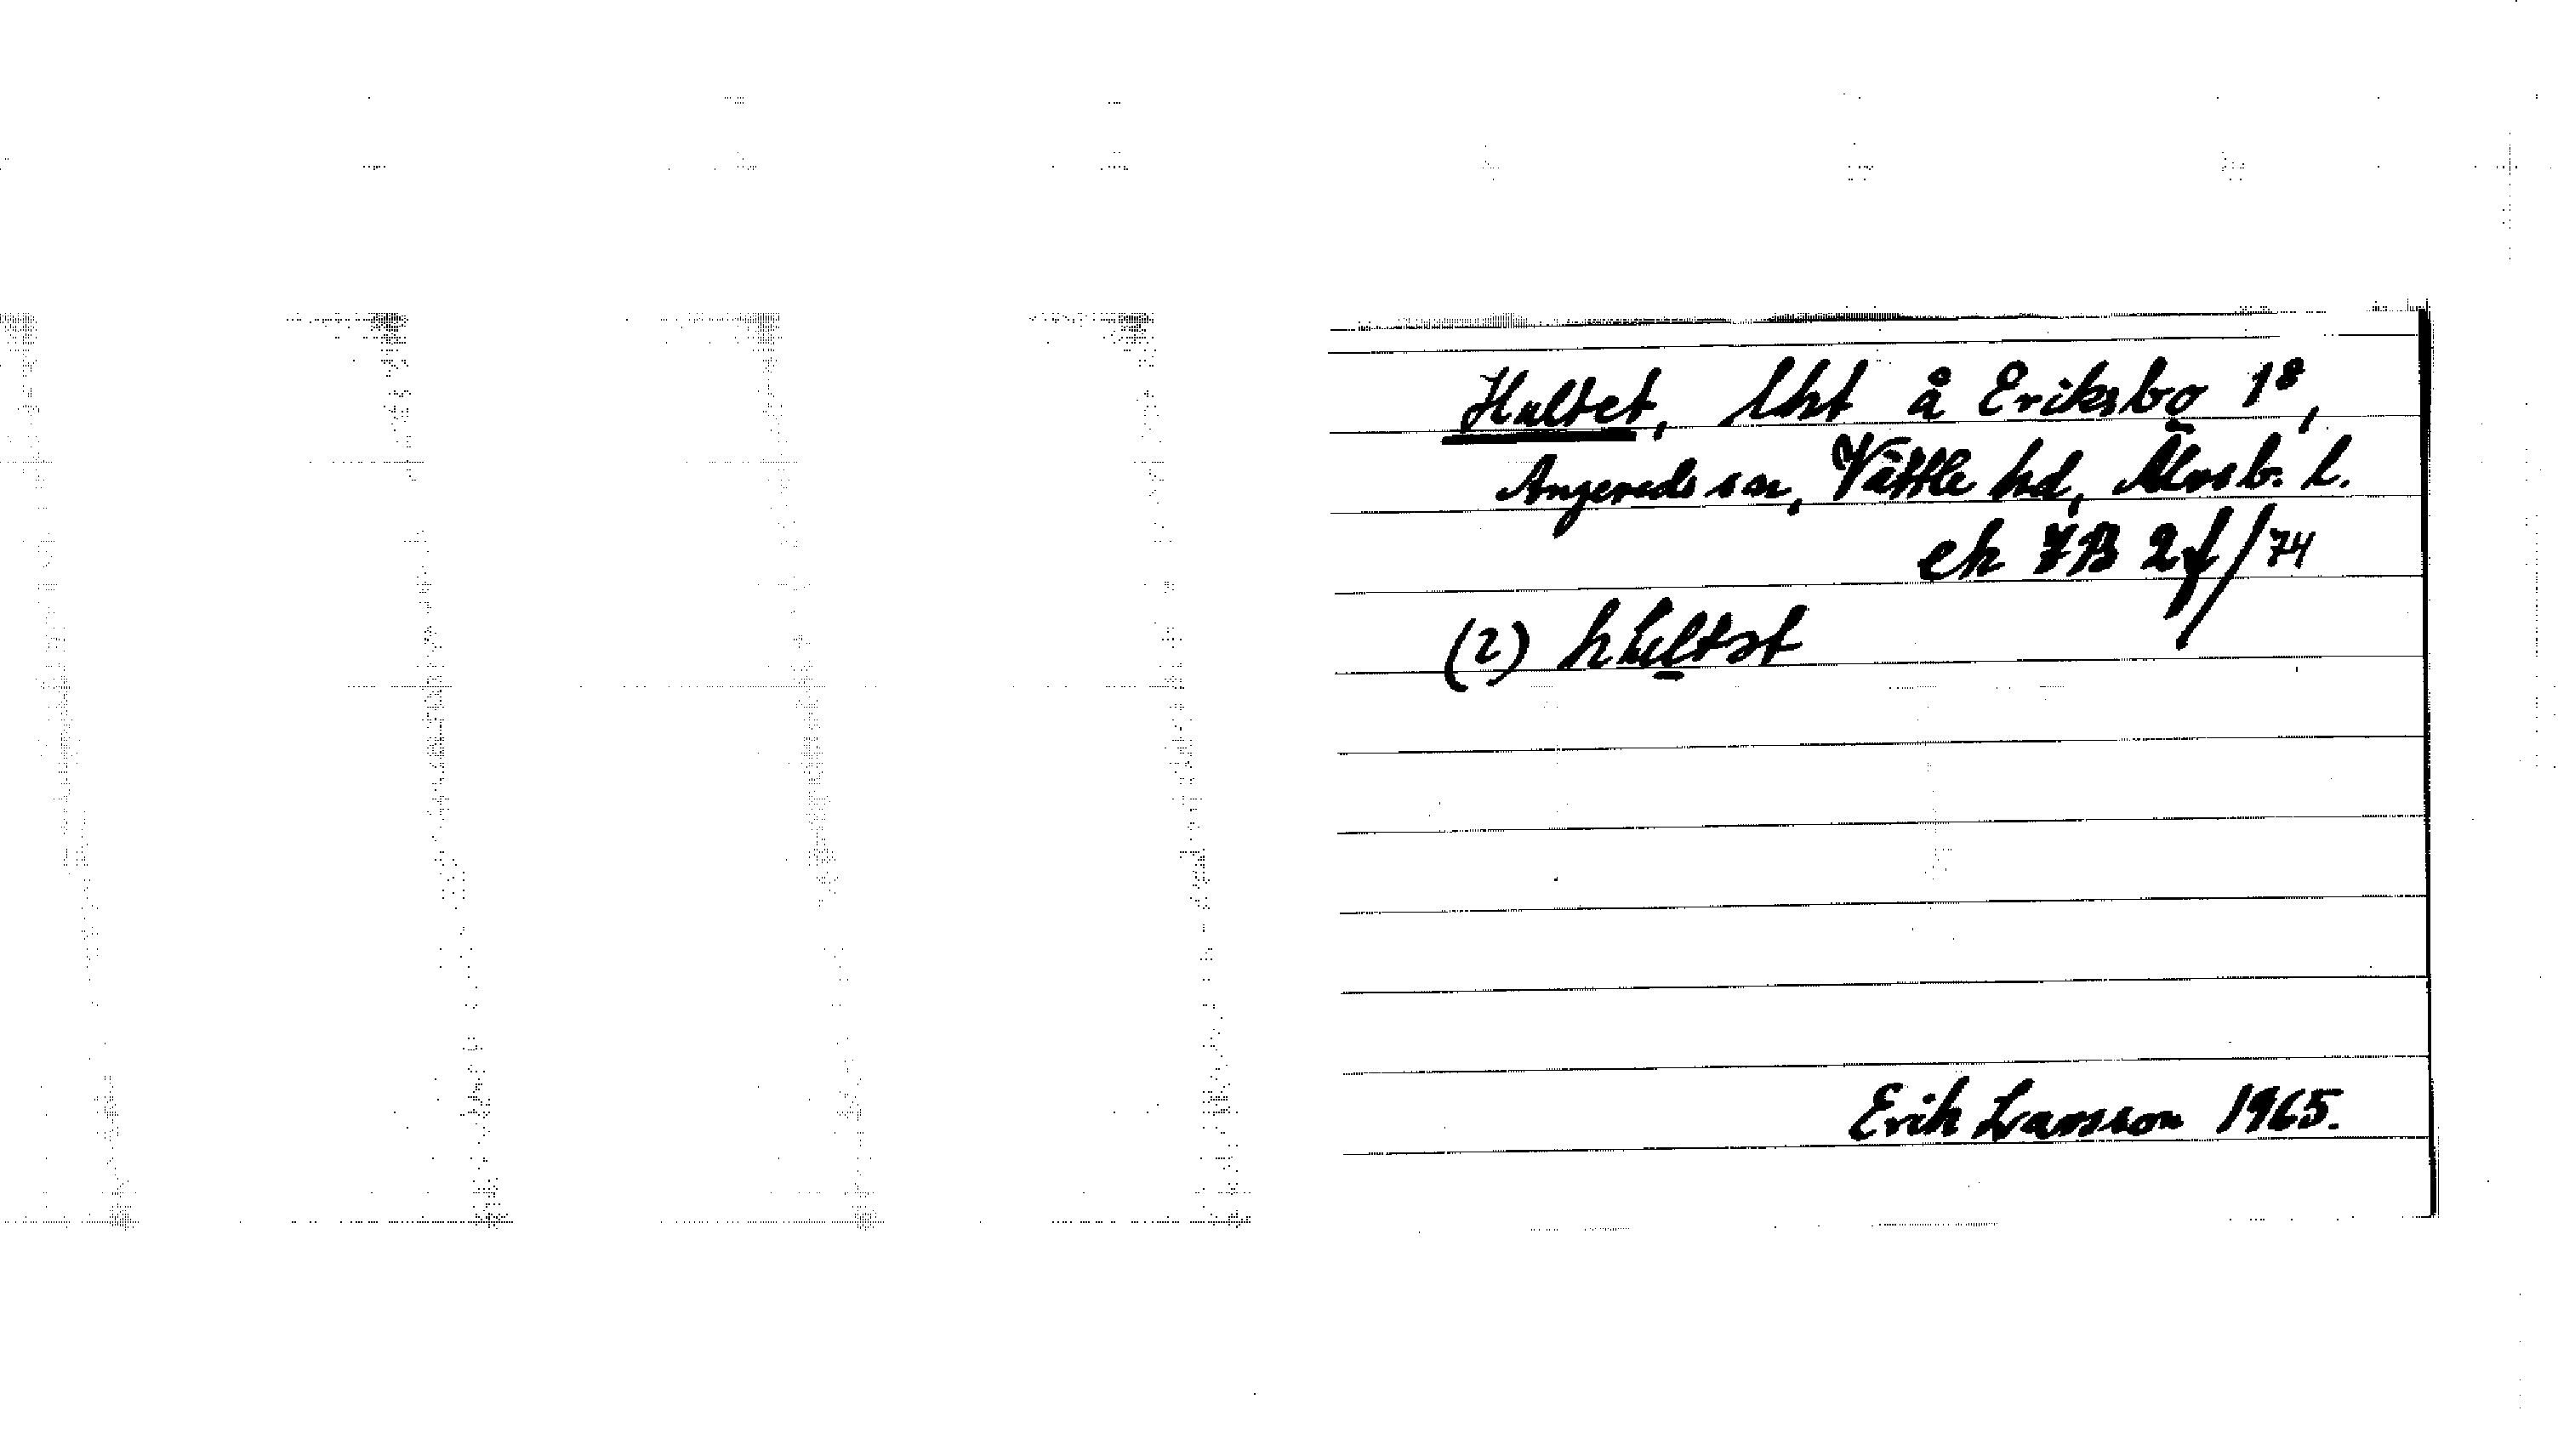 Hultet, lht å Eriksbo 1⁸,
Angereds sn, Vättle hd, Älvsb. l.
ek 7B 2f/74
(2) hultət
Erik Larsson 1965.